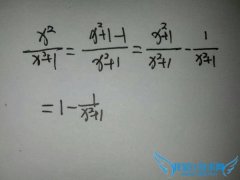 x²/x²+1 = x²+1-1/x²+1 = x²+1/x²+1 - 1/x²+1
= 1 - 1/x²+1